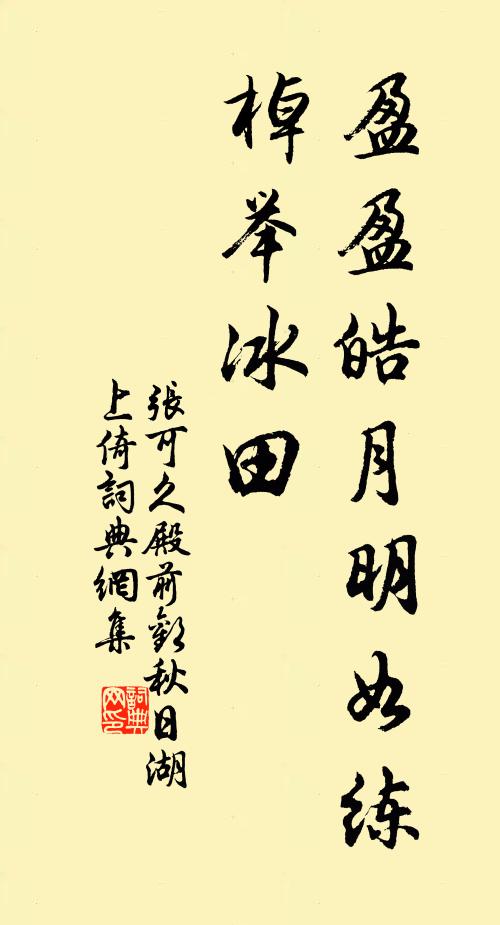 盈盈皓月明如练
棹举冰田
張可久殿前歡秋日湖
上倚詞典網集
詞典
网印